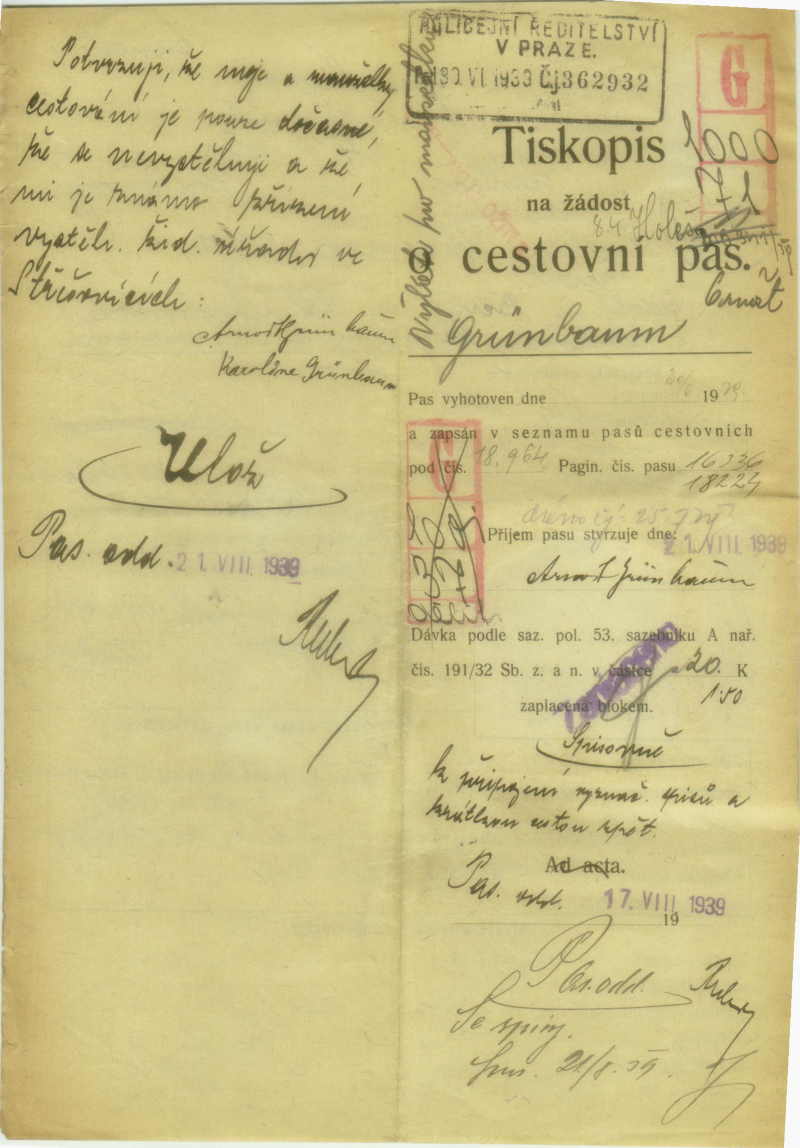 Potvrzuji, že moje a manželky
cestování je pouze dočasné,
že se nevystěhuji a že
mi je známo zřízení
vystěh. žid. úřadu ve
Střešovicích:
Arnošt Grünbaum
Karoline Grünbaum
Ulož
Pas. odd. 21. VIII. 1939
POLICEJNÍ ŘEDITELSTVÍ
V PRAZE.
30. VI. 1939 Čj. 362932
G
Tiskopis
1000
na žádost
71
84
o cestovní pas.
Arnošt
Grünbaum
Pas vyhotoven dne 19 39.
a zapsán v seznamu pasů cestovních
pod čís. 18.964 Pagin. čís. pasu 16336
18224
G
Příjem pasu stvrzuje dne: 21. VIII. 1939
Arnošt Grünbaum
Dávka podle saz. pol. 53. sazebníku A nař.
čís. 191/32 Sb. z. a n. v částce 20. K
1·50
zaplacena blokem.
Spisovně
k připojení vyznač. spisů a
krátkou cestou zpět.
Ad acta.
Pas. odd. 17. VIII. 1939
19
Pas. odd.
Se spisy.
21/8. 39.